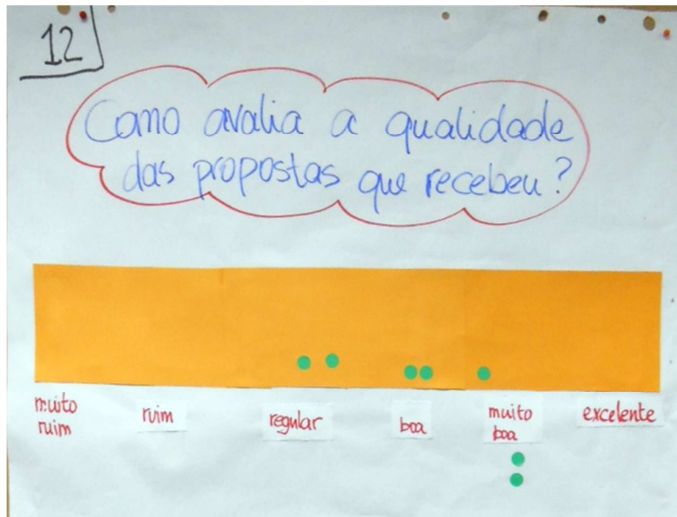 12
Como avalia a qualidade
das propostas que recebeu?
muito
ruim
ruim
regular
boa
muito
boa
excelente